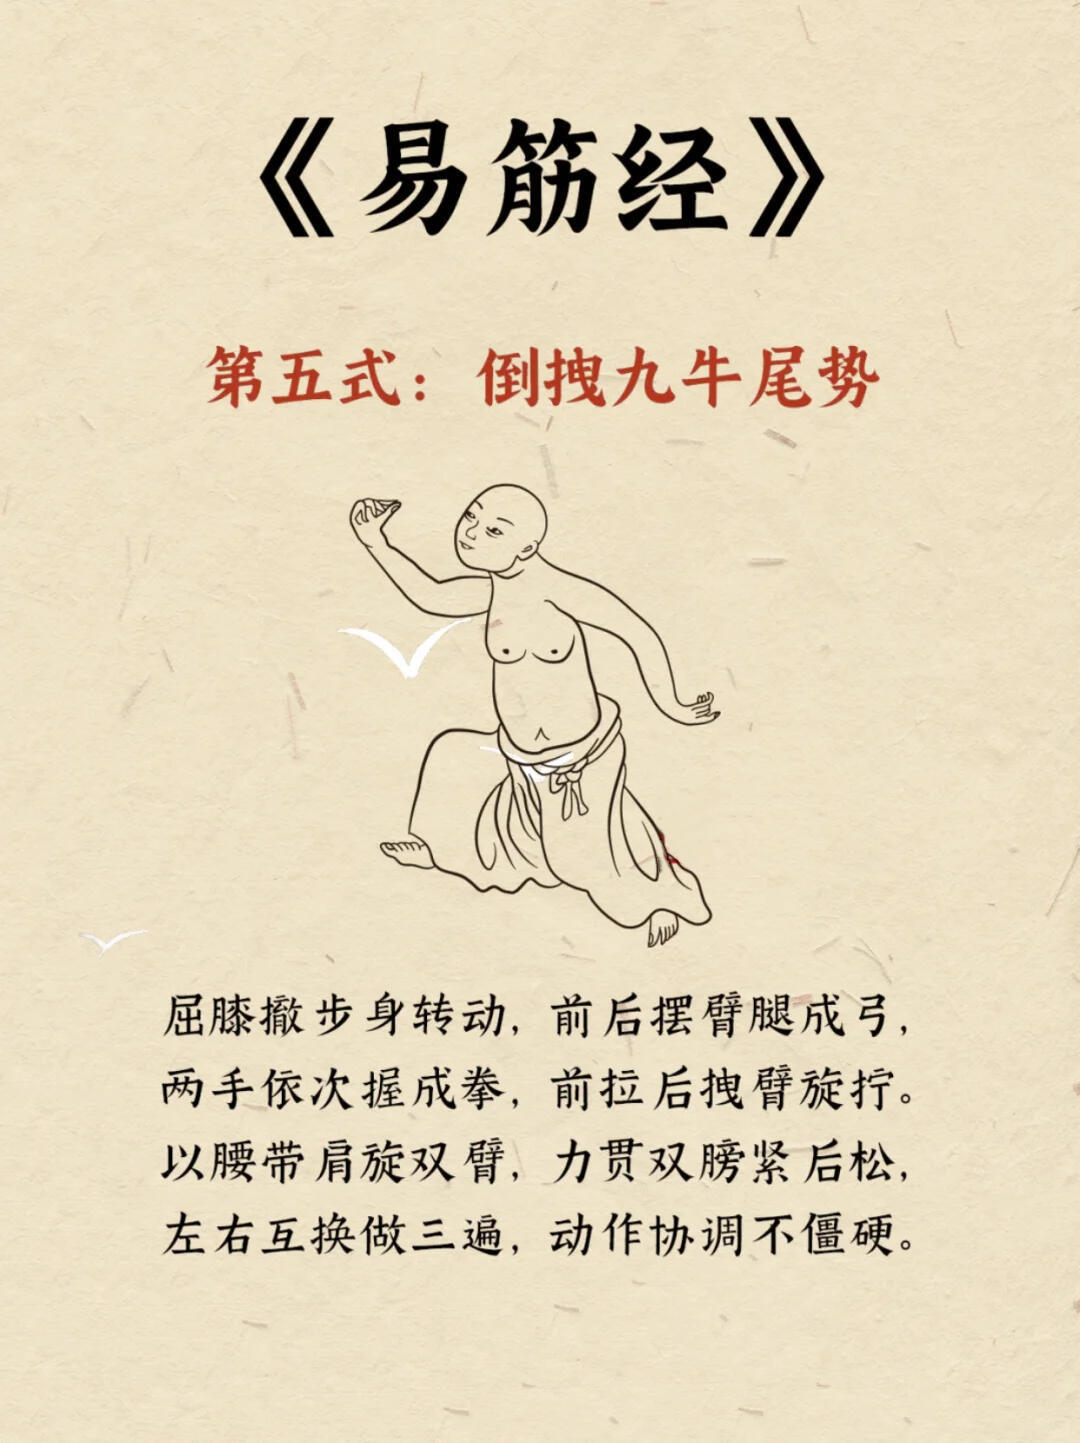 《易筋经》
第五式：倒拽九牛尾势
屈膝撤步身转动，前后摆臂腿成弓，
两手依次握成拳，前拉后拽臂旋拧。
以腰带肩旋双臂，力贯双膀紧后松，
左右互换做三遍，动作协调不僵硬。